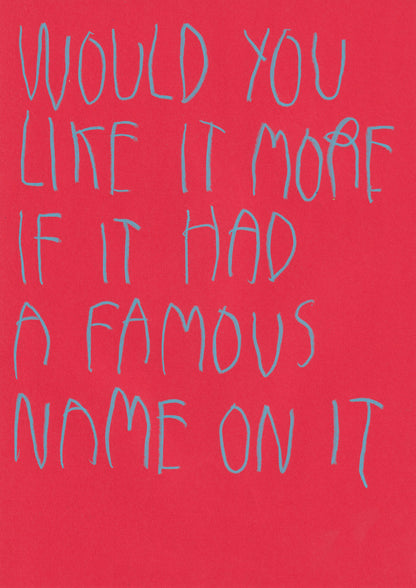 WOULD YOU
LIKE IT MORE
IF IT HAD
A FAMOUS
NAME ON IT